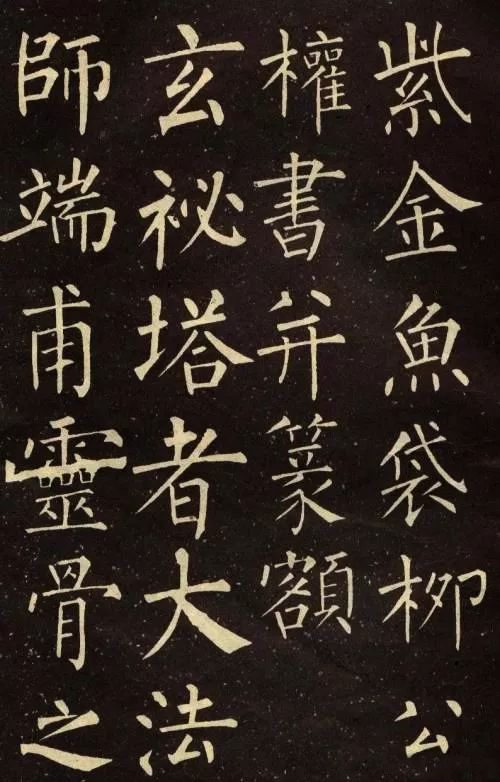 紫金魚袋柳公
權書并篆額
玄祕塔者大法
師端甫靈骨之